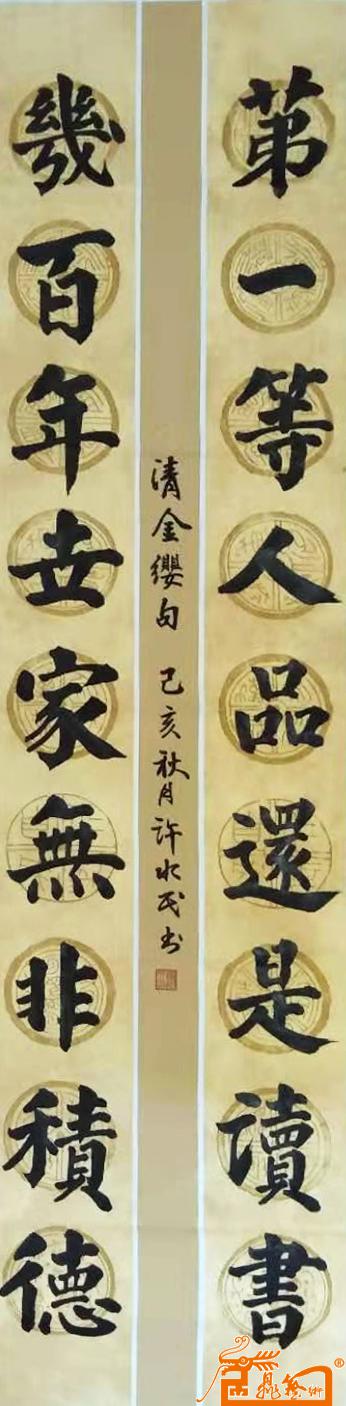 第一等人品還是讀書
幾百年世家無非積德
清金纓句 己亥秋月許水民書
鼎藝術